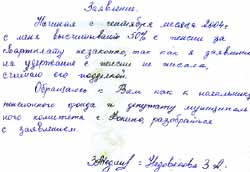 Заявление.
Начиная с сентября месяца 2004 г
с меня высчитывают 50% с пенсии за
квартплату незаконно, так как я заявление
на удержание с пенсии не писала,
считаю его подделкой.
Обращаюсь к Вам как к начальнику
пенсионного фонда и депутату муниципаль
ного комитета г. Фокино, разобраться
с заявлением.
З. А.